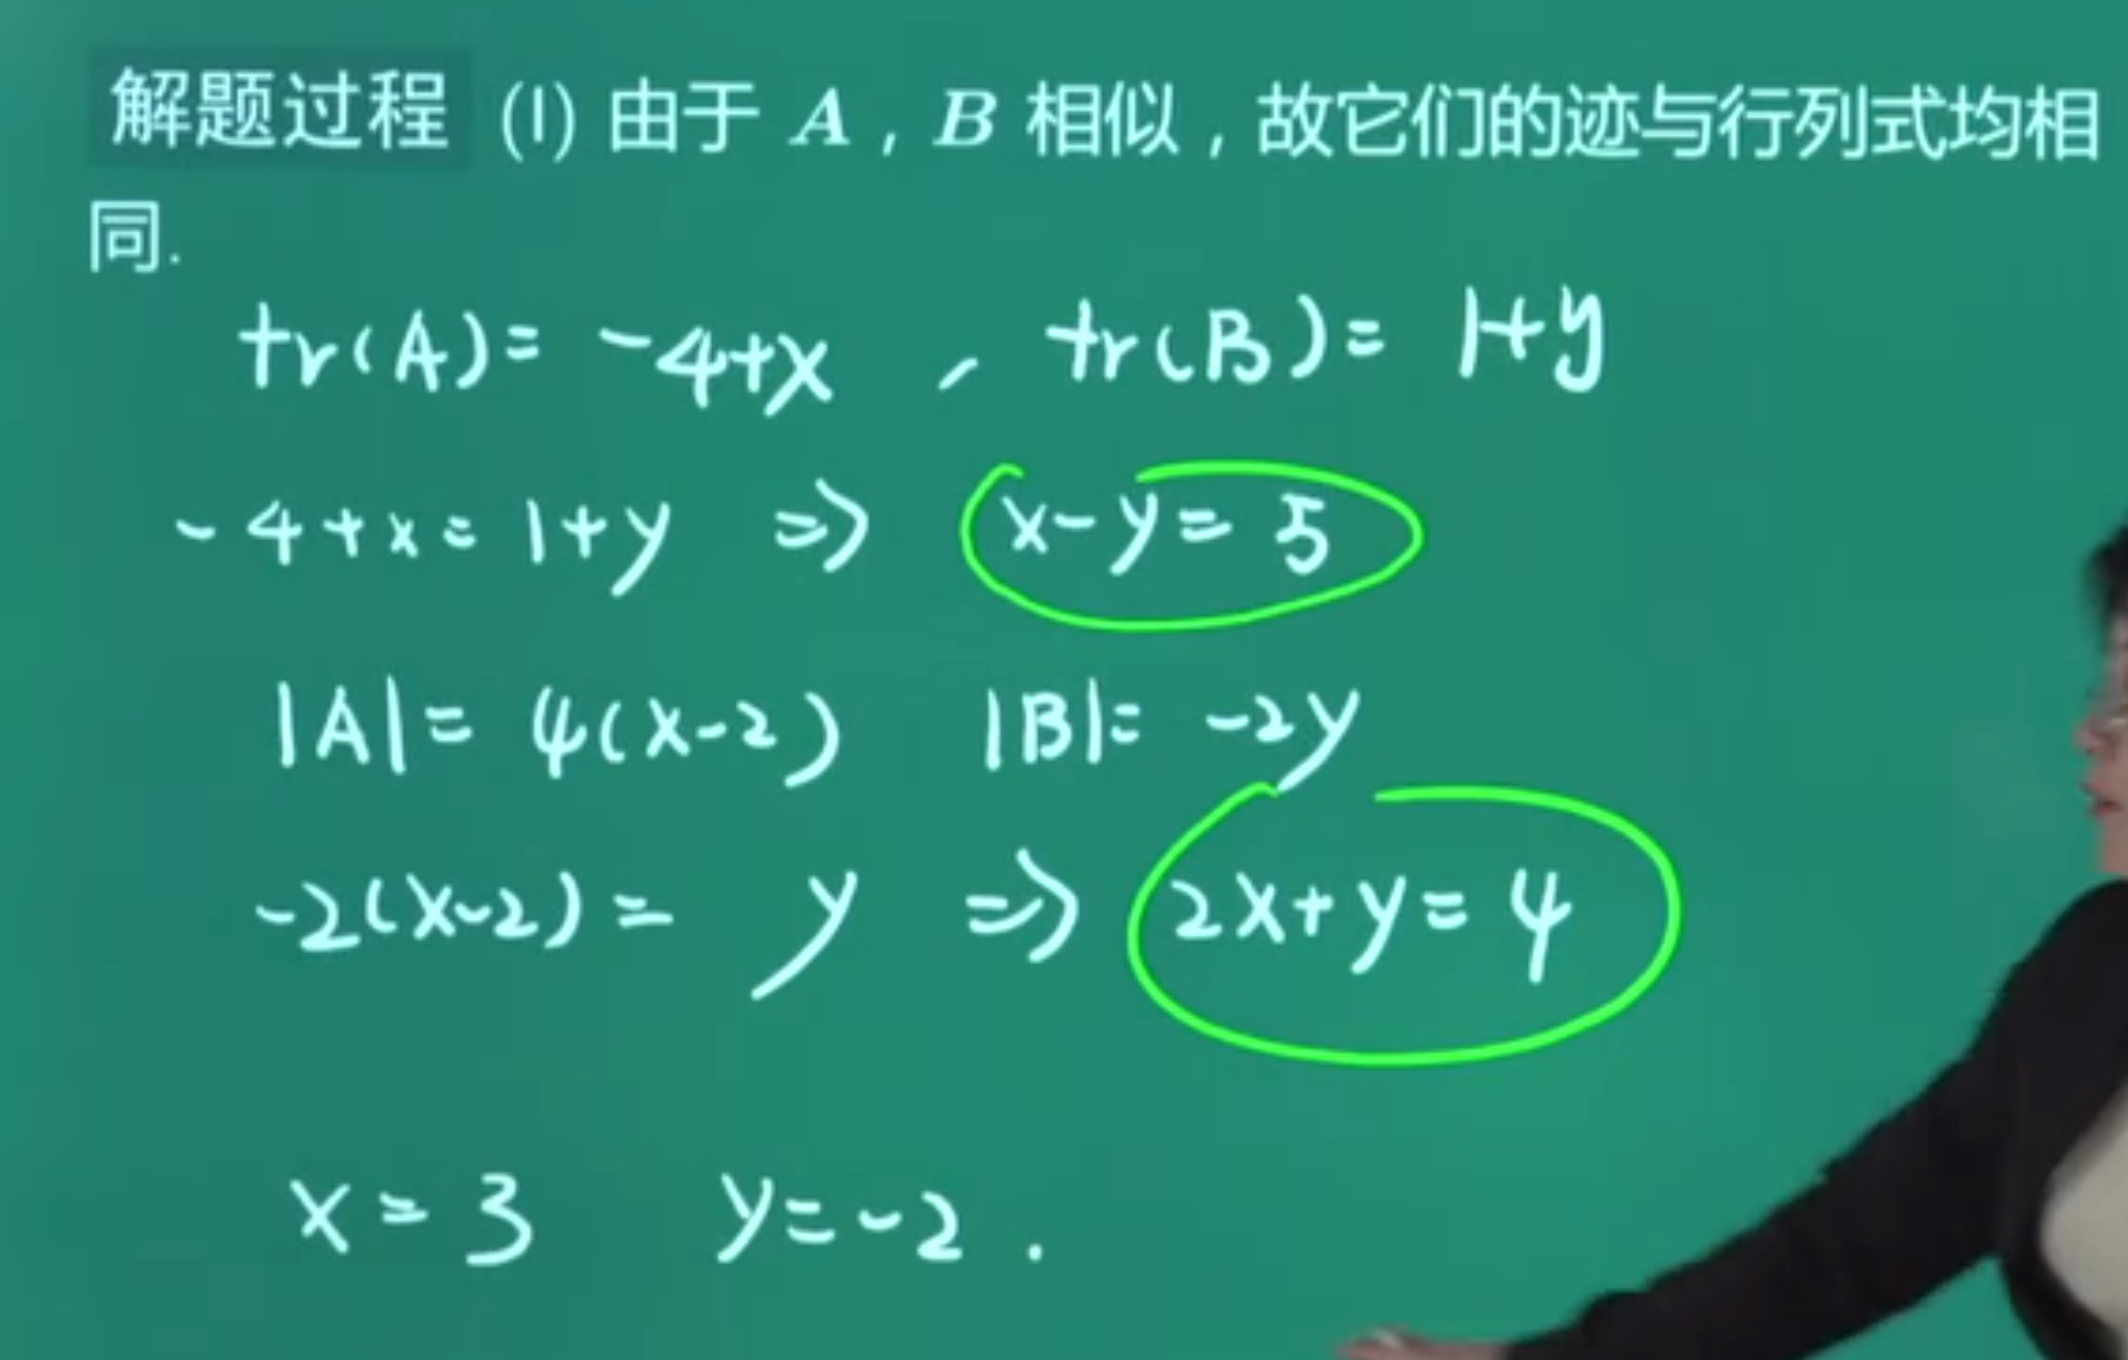 解题过程 (1) 由于 A , B 相似 , 故它们的迹与行列式均相
同.
tr(A) = -4+x , tr(B) = 1+y
-4+x = 1+y ⇒ x-y = 5
|A| = 4(x-2) |B| = -2y
-2(x-2) = y ⇒ 2x+y = 4
x = 3 y = -2 .